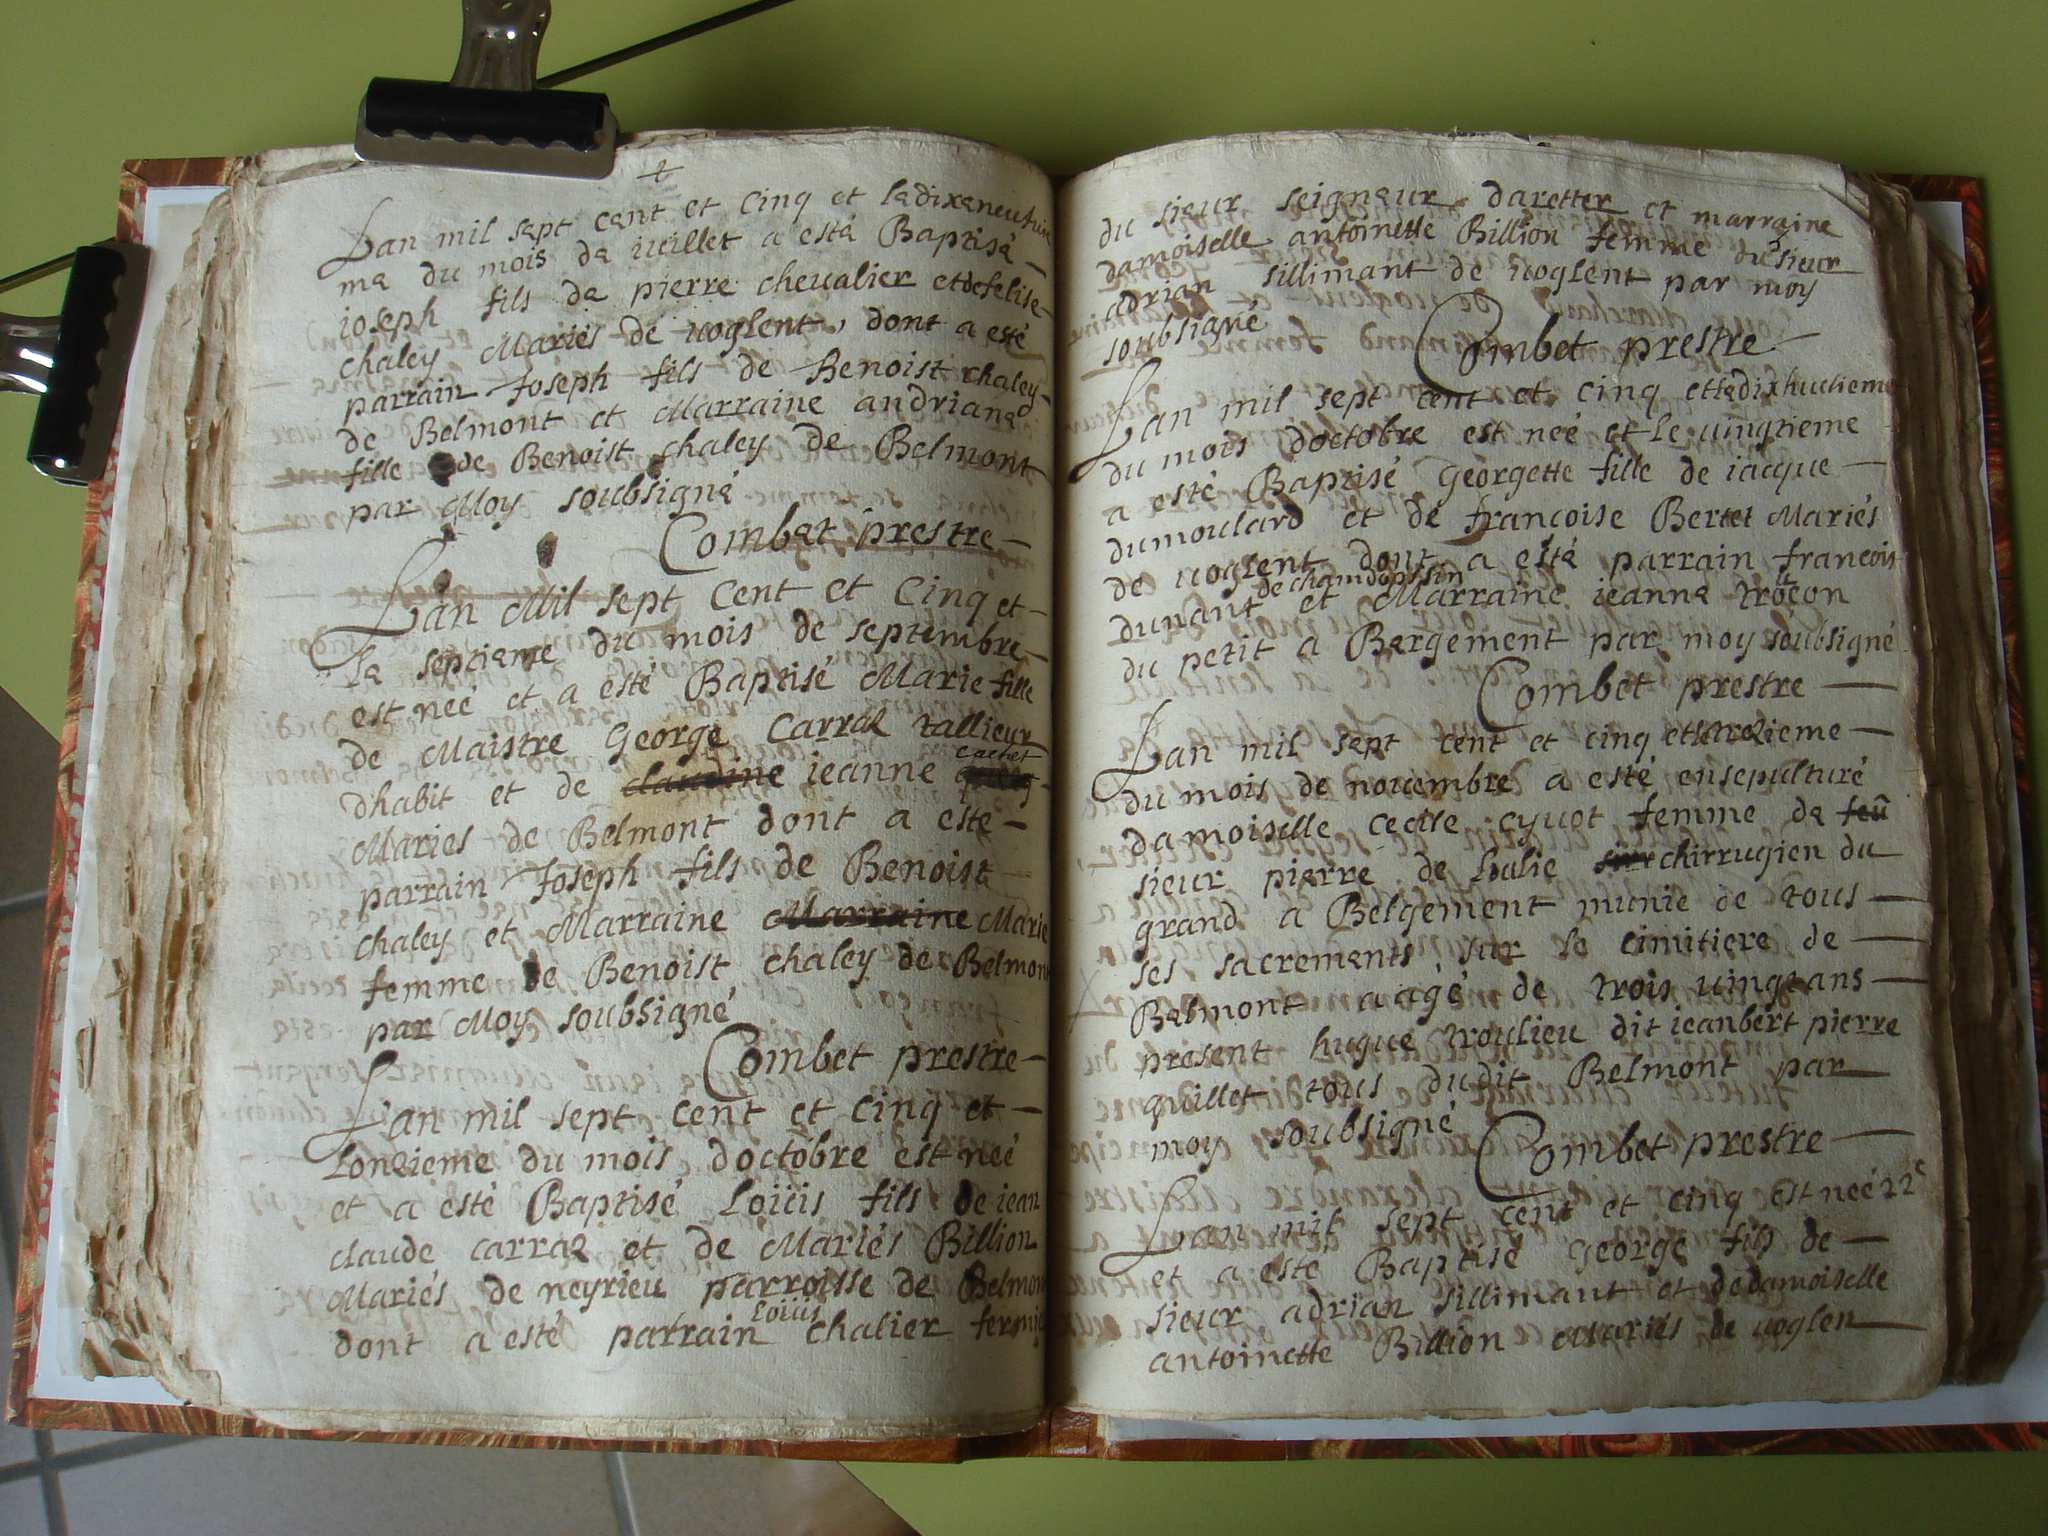 Lan mil sept cent et cinq et le dixeneufuie
me du mois de iuillet a esté Baptisé
ioseph fils de pierre cheualier et de felise
chaley Mariés de uoglent, dont a esté
parrain Joseph fils de Benoist chaley
de Belmont et Marraine andriane
fille de Benoist chaley de Belmont
par Moy soubsigné
Combet prestre
Lan Mil sept Cent et Cinq et
le septieme du mois de septembre
est neé et a esté Baptisé Marie fille
de Maistre George Carraz tallieur
cachet
dhabit et de claudine ieanne
Mariés de Belmont dont a esté
parrain Joseph fils de Benoist
chaley et Marraine Marraine Marie
femme de Benoist chaley de Belmont
par Moy soubsigné
Combet prestre
Lan mil sept cent et cinq et
Lonzieme du mois doctobre est neé
et a esté Baptisé Loüis fils de iean
claude carraz et de Mariés Billion
Mariés de neyrieu parroisse de Belmon
Loüis
dont a esté parrain chalier fermie
du sieur seigneur daretter et marraine
damoiselle antoinette Billion femme du sieur
adrian sillimant de uoglent par moy
soubsigné
Combet prestre
Lan mil sept cent et cinq et le dixhuitieme
du mois doctobre est neé et le uingtieme
a esté Baptisé Georgette fille de iacque
dumoulard et de francoise Bertet Mariés
de uoglent dont a esté parrain francois
de chamdossin
dunant et Marraine ieanne trocon
du petit a Bergement par moy soubsigné
Combet prestre
Lan mil sept cent et cinq et le trezieme
du mois de nouembre a esté ensepulturé
damoiselle cecile cyuot femme de feû
sieur pierre de Loulie chirrugien du
grand a Belgement munie de tous
ses sacrements sur le cimitiere de
Belmont aagé de trois uingt ans
present hugue troulieu dit ieanbert pierre
quillet tous dudit Belmont par
moy soubsigné
Combet prestre
Lan mil sept cent et cinq est neé 22e
et a esté Baptisé George fils de
sieur adrian sillimant et de damoiselle
antoinette Billion Mariés de uoglen